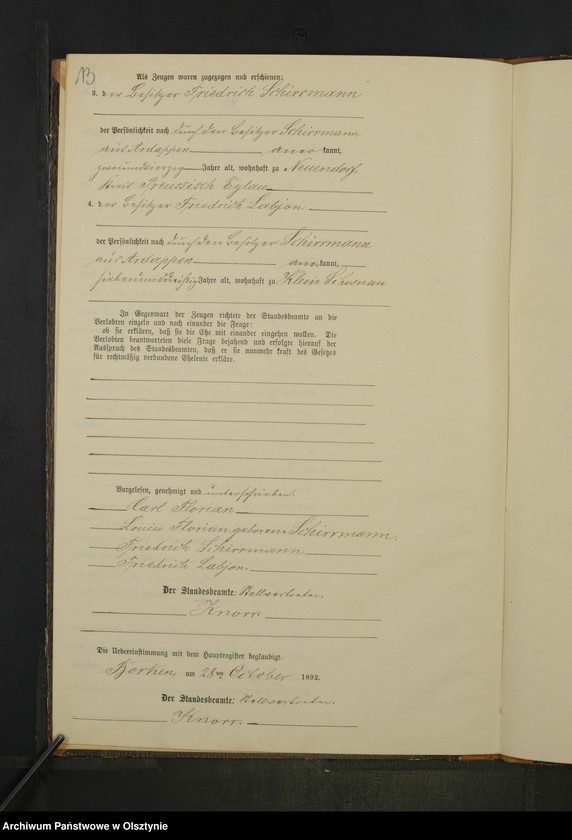 13
Als Zeugen waren zugezogen und erschienen:
3. der Besitzer Friedrich Schirrmann
der Persönlichkeit nach durch den Besitzer Schirrmann
aus Ardappen anerkannt,
zweiundvierzig Jahre alt, wohnhaft zu Neuendorf
Kreis Preussisch Eylau
4. der Besitzer Friedrich Labjon
der Persönlichkeit nach durch den Besitzer Schirrmann
aus Ardappen anerkannt,
siebenunddreißig Jahre alt, wohnhaft zu Klein Schoenau
In Gegenwart der Zeugen richtete der Standesbeamte an die
Verlobten einzeln und nach einander die Frage:
ob sie erklären, daß sie die Ehe mit einander eingehen wollen. Die
Verlobten beantworteten diese Frage bejahend und erfolgte hierauf der
Ausspruch des Standesbeamten, daß er sie nunmehr kraft des Gesetzes
für rechtmäßig verbundene Eheleute erkläre.
Vorgelesen, genehmigt und unterschrieben.
Carl Florian
Louise Florian geborene Schirrmann.
Friedrich Schirrmann
Friedrich Labjon.
Der Standesbeamte: Stellvertreter.
Knorr
Die Uebereinstimmung mit dem Hauptregister beglaubigt
Borken, am 28ten October 1892.
Der Standesbeamte: Stellvertreter.
Knorr.
Archiwum Państwowe w Olsztynie